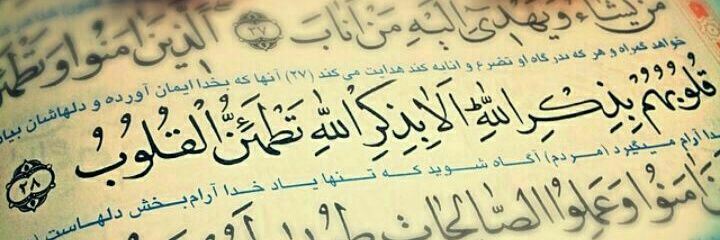 مَن يَشَاءُ وَيَهْدِي إِلَيْهِ مَنْ أَنَابَ ۝٢٧ الَّذِينَ آمَنُوا وَتَطْمَئِنُّ
خواهد گمراه و هر که بدرگاه او تضرع و انابه کند هدایت می‌کند (۲۷) آنها که بخدا ایمان آورده و دلهاشان بیاد
قُلُوبُهُم بِذِكْرِ اللَّهِ أَلَا بِذِكْرِ اللَّهِ تَطْمَئِنُّ الْقُلُوبُ ۝٢٨
خدا آرام میگیرد (مردم) آگاه شوید که تنها یاد خدا آرام‌بخش دلهاست
آمَنُوا وَعَمِلُوا الصَّالِحَاتِ